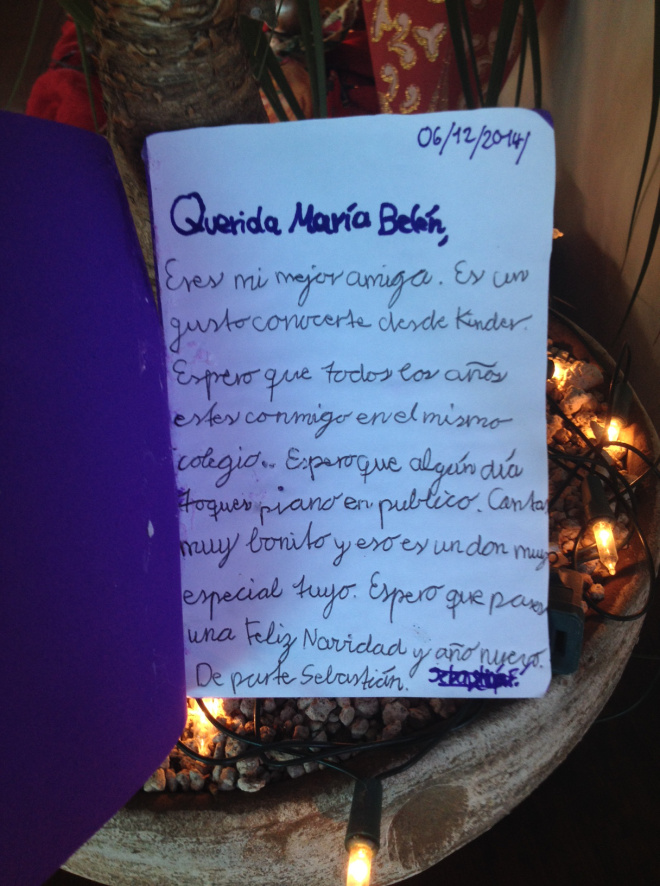 06/12/2014/
Querida María Belén,
Eres mi mejor amiga. Es un
gusto conocerte desde Kinder.
Espero que todos los años
estes conmigo en el mismo
colegio.. Espero que algún día
toques piano en publico. Cantas
muy bonito y eso es un don muy
especial tuyo. Espero que pases
una Feliz Navidad y año nuevo.
De parte Sebastián.